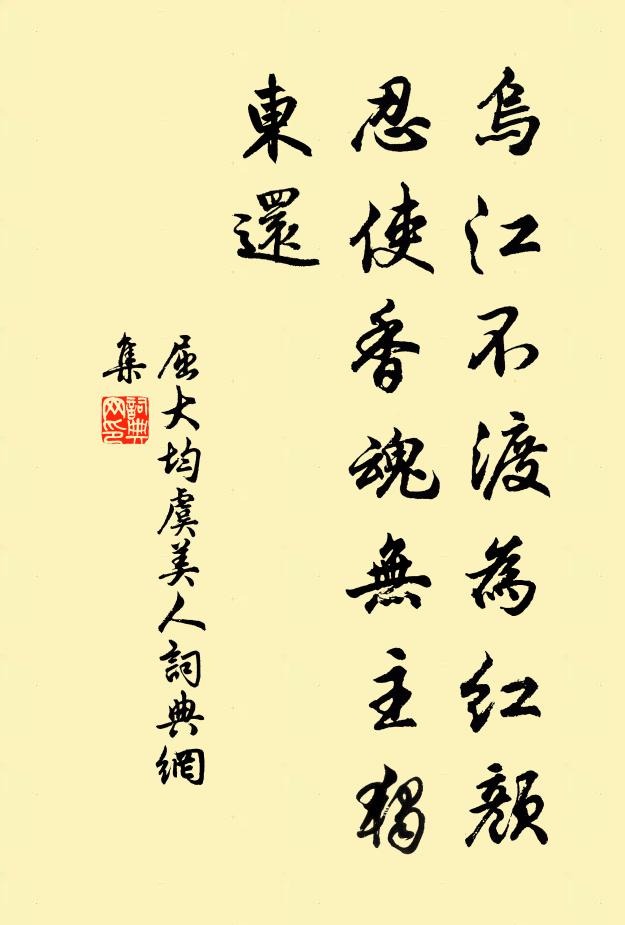 烏江不渡為紅顏
忍使香魂無主獨
東還
屈大均虞美人詞典網
集
詞典
网印